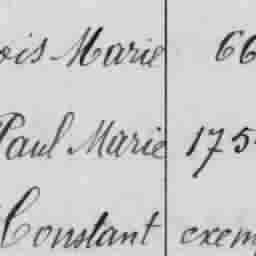 ois Marie 66
Paul Marie 175
Constant exem